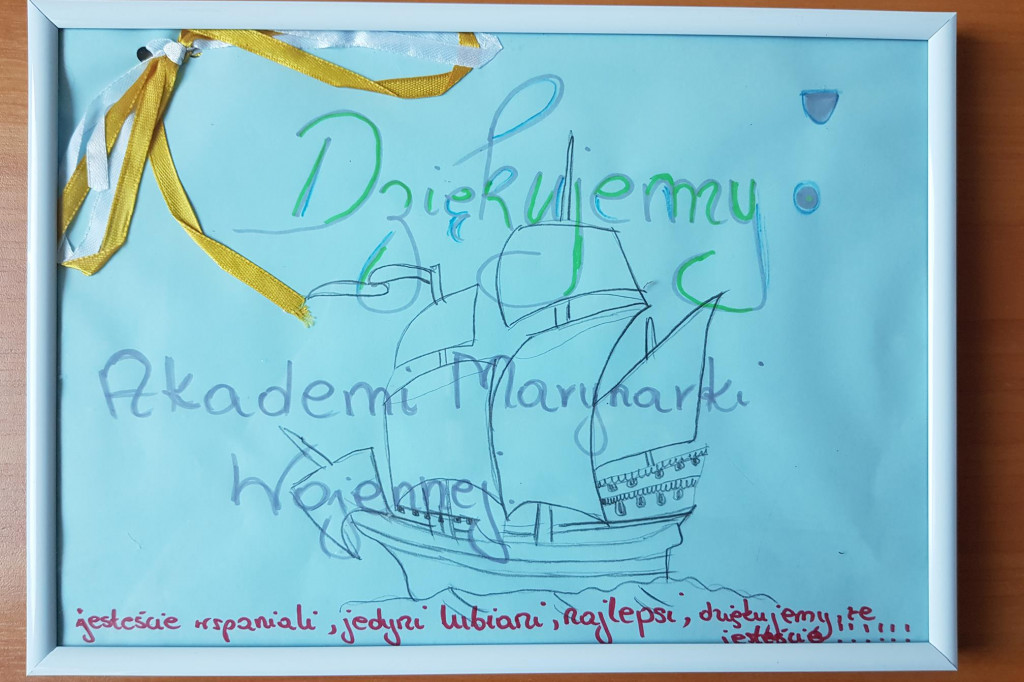 Dziękujemy !
Akademi Marynarki
Wojennej.
jesteście wspaniali, jedyni lubiani, najlepsi, dziękujemy, że
jesteście!!!!!!